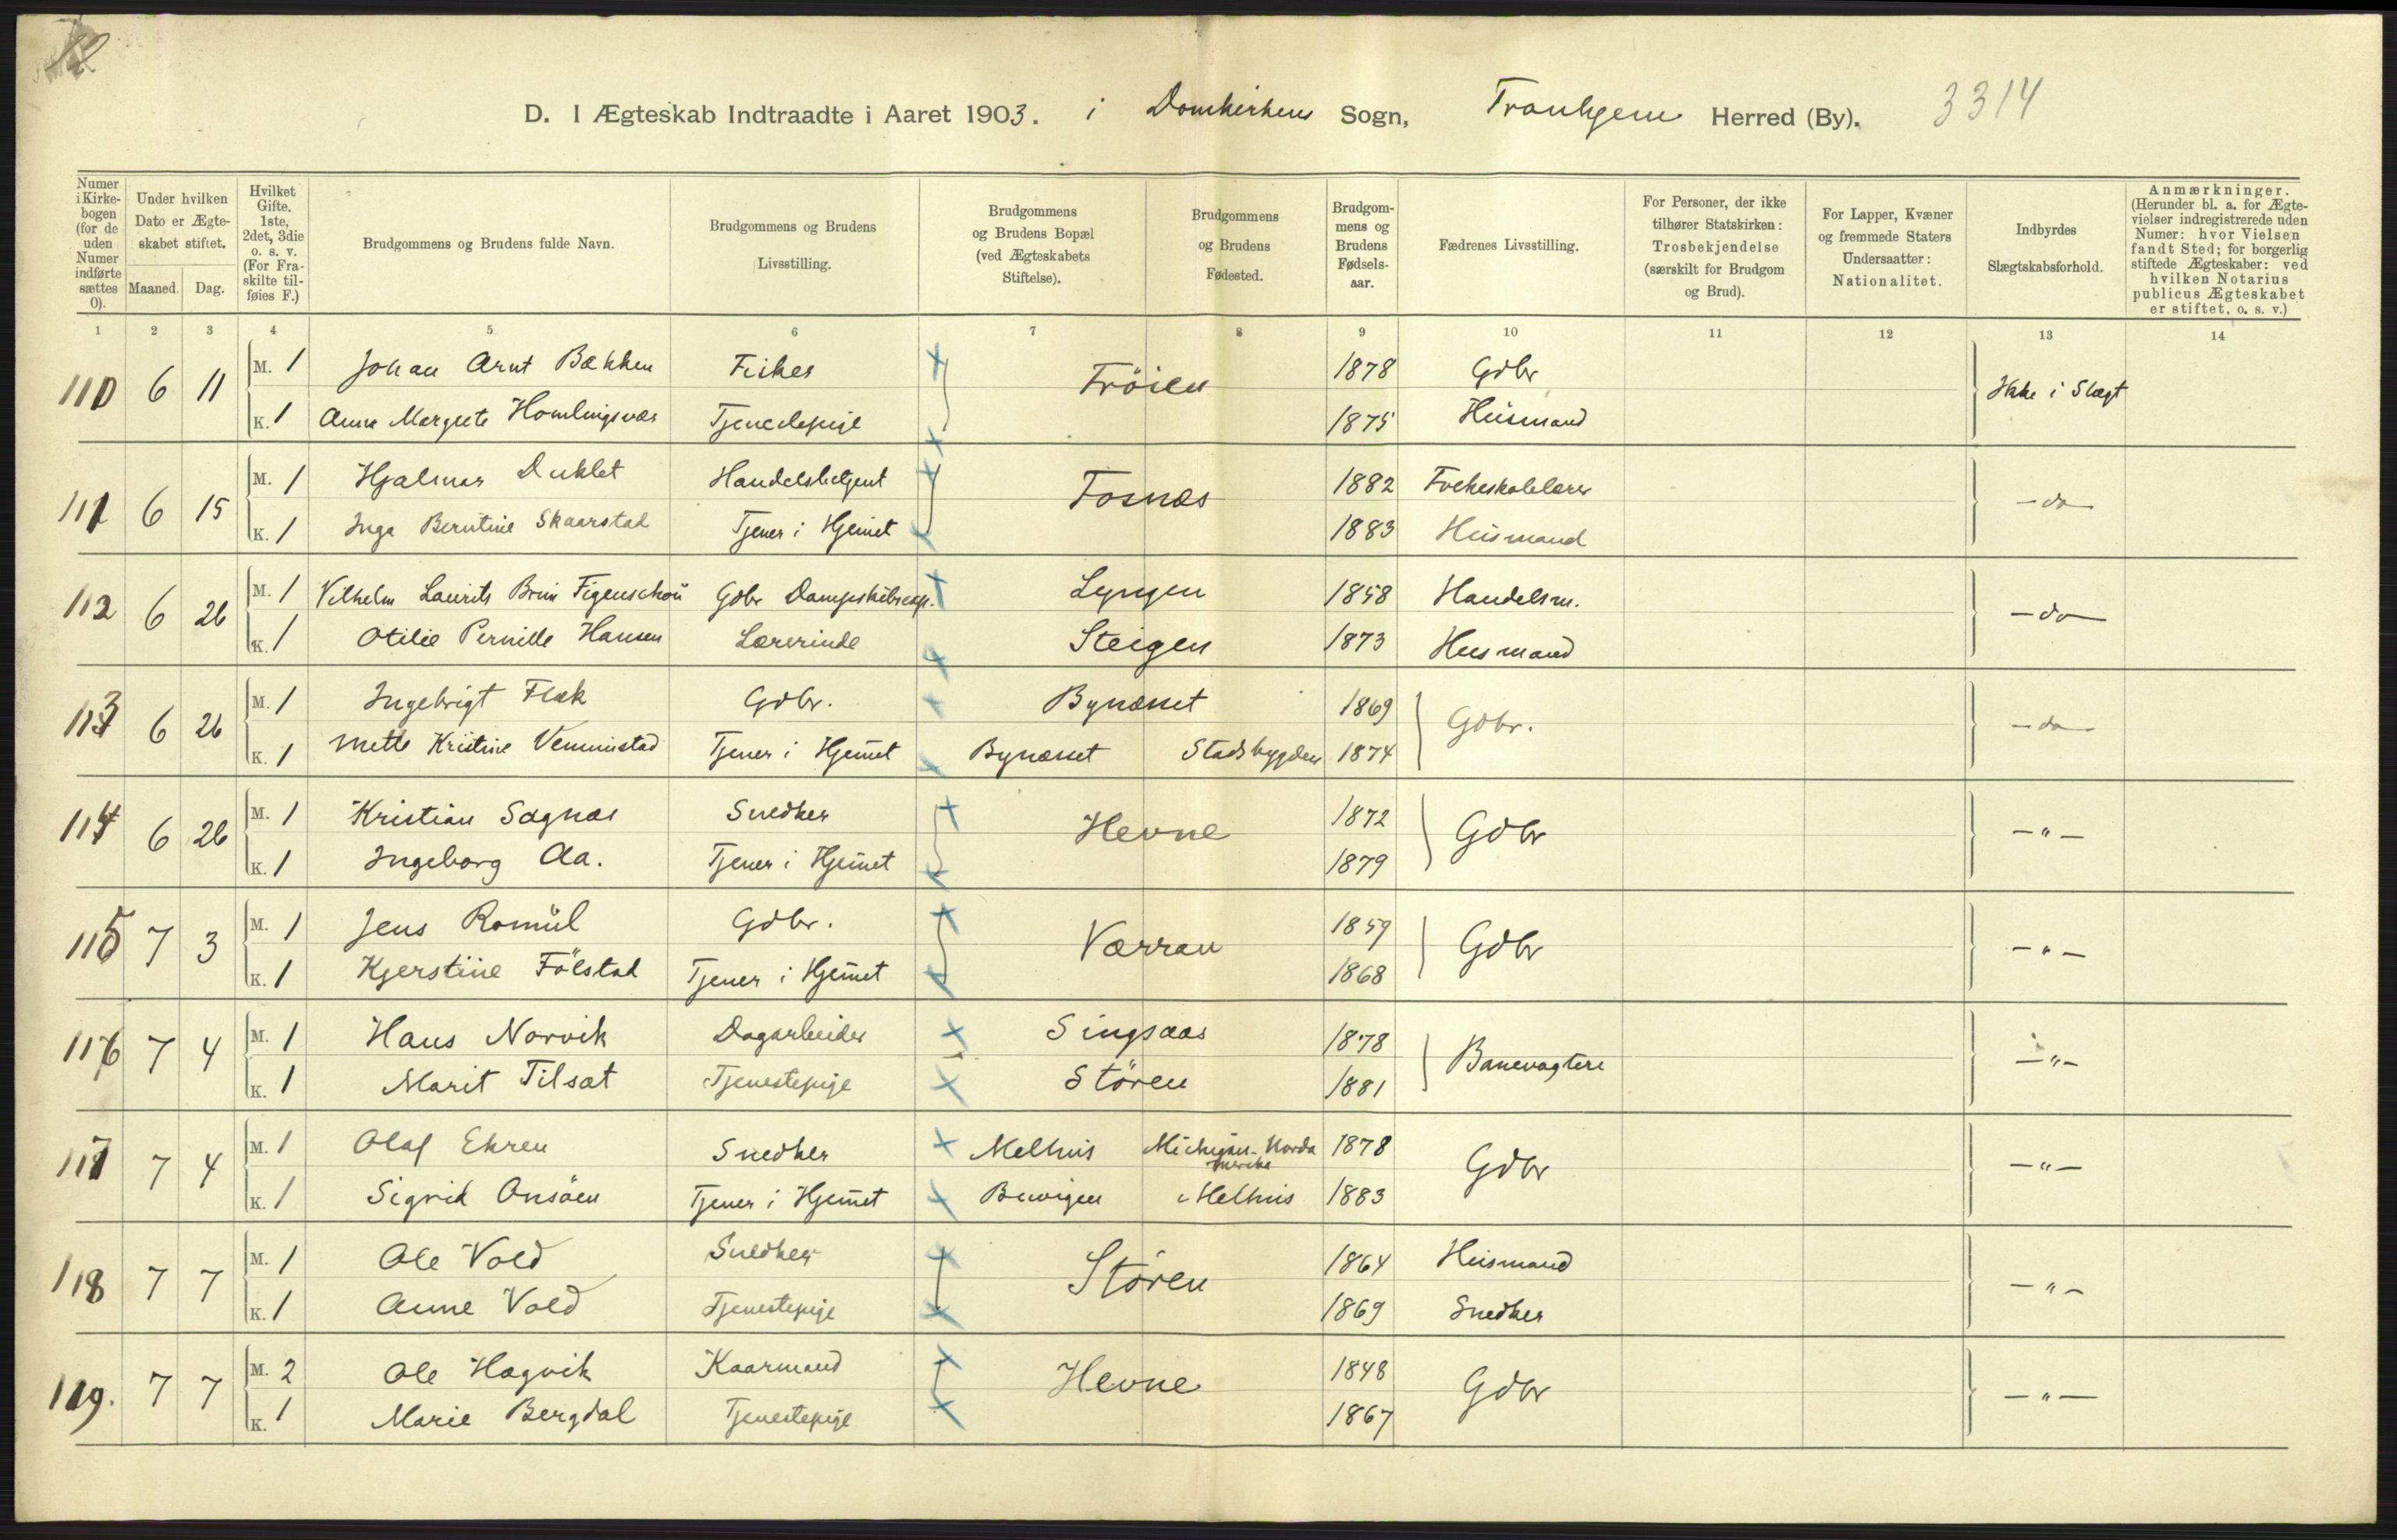 12
D. I Ægteskab Indtraadte i Aaret 1903. i Domkirkens Sogn, Tronhjem Herred (By). 3314
Numer i Kirkebogen (for de uden Numer indførte sættes 0). Under hvilken Dato er Ægteskabet stiftet. Maaned. Dag. Hvilket Gifte, 1ste, 2det, 3die o. s. v. (For Fraskilte tilføies F.) Brudgommens og Brudens fulde Navn. Brudgommens og Brudens Livsstilling. Brudgommens og Brudens Bopæl (ved Ægteskabets Stiftelse). Brudgommens og Brudens Fødested. Brudgommens og Brudens Fødselsaar. Fædrenes Livsstilling. For Personer, der ikke tilhører Statskirken: Trosbekjendelse (særskilt for Brudgom og Brud). For Lapper, Kvæner og fremmede Staters Undersaatter: Nationalitet. Indbyrdes Slægtskabsforhold. Anmærkninger. (Herunder bl. a. for Ægtevielser indregistrerede uden Numer: hvor Vielsen fandt Sted; for borgerlig stiftede Ægteskaber: ved hvilken Notarius publicus Ægteskabet er stiftet, o. s. v.)
1 2 3 4 5 6 7 8 9 10 11 12 13 14
110 6 11 M. 1 Johan Arnt Bækken Fisker Fröien 1878 Gdbr Ikke i Slægt
K. 1 Anne Margrete Homlingsvær Tjenestepige 1875 Husmand
111 6 15 M. 1 Hjalmar Duklæt Handelsbetjent Fosnæs 1882 Folkeskolelærer - do -
K. 1 Inga Berntine Skaarstad Tjener i Hjemet 1883 Husmand
112 6 26 M. 1 Vilhelm Laurits Brun Figenschou Gdbr Dampskibsexp. Lyngen 1858 Handelsm. - do -
K. 1 Otilie Pernille Hansen Lærerinde Steigen 1873 Husmand
113 6 26 M. 1 Ingebrigt Flak Gdbr. Bynæsset 1869 Gdbr. - do -
K. 1 Mette Kristine Vemmistad Tjener i Hjemet Bynæsset Stadsbygden 1874
114 6 26 M. 1 Kristian Sagnæs Snedker Hevne 1872 Gdbr - " -
K. 1 Ingeborg Aa. Tjener i Hjemet 1879
115 7 3 M. 1 Jens Romul Gdbr. Værran 1859 Gdbr - " -
K. 1 Kjerstine Fölstad Tjener i Hjemet 1868
116 7 4 M. 1 Hans Norvik Dagarbeider Singsaas 1878 Banevogtere - " -
K. 1 Marit Tilsæt Tjenestepige Stören 1881
117 7 4 M. 1 Olaf Ehren Snedker Melhus Michigan Nordamerika 1878 Gdbr - " -
K. 1 Sigrid Onsöen Tjener i Hjemet Buvigen Melhus 1883
118 7 7 M. 1 Ole Vold Snedker Stören 1864 Husmand - " -
K. 1 Anne Vold Tjenestepige 1869 Snedker
119. 7 7 M. 2 Ole Hagvik Kaarmand Hevne 1848 Gdbr - " -
K. 1 Marie Bergdal Tjenestepige 1867